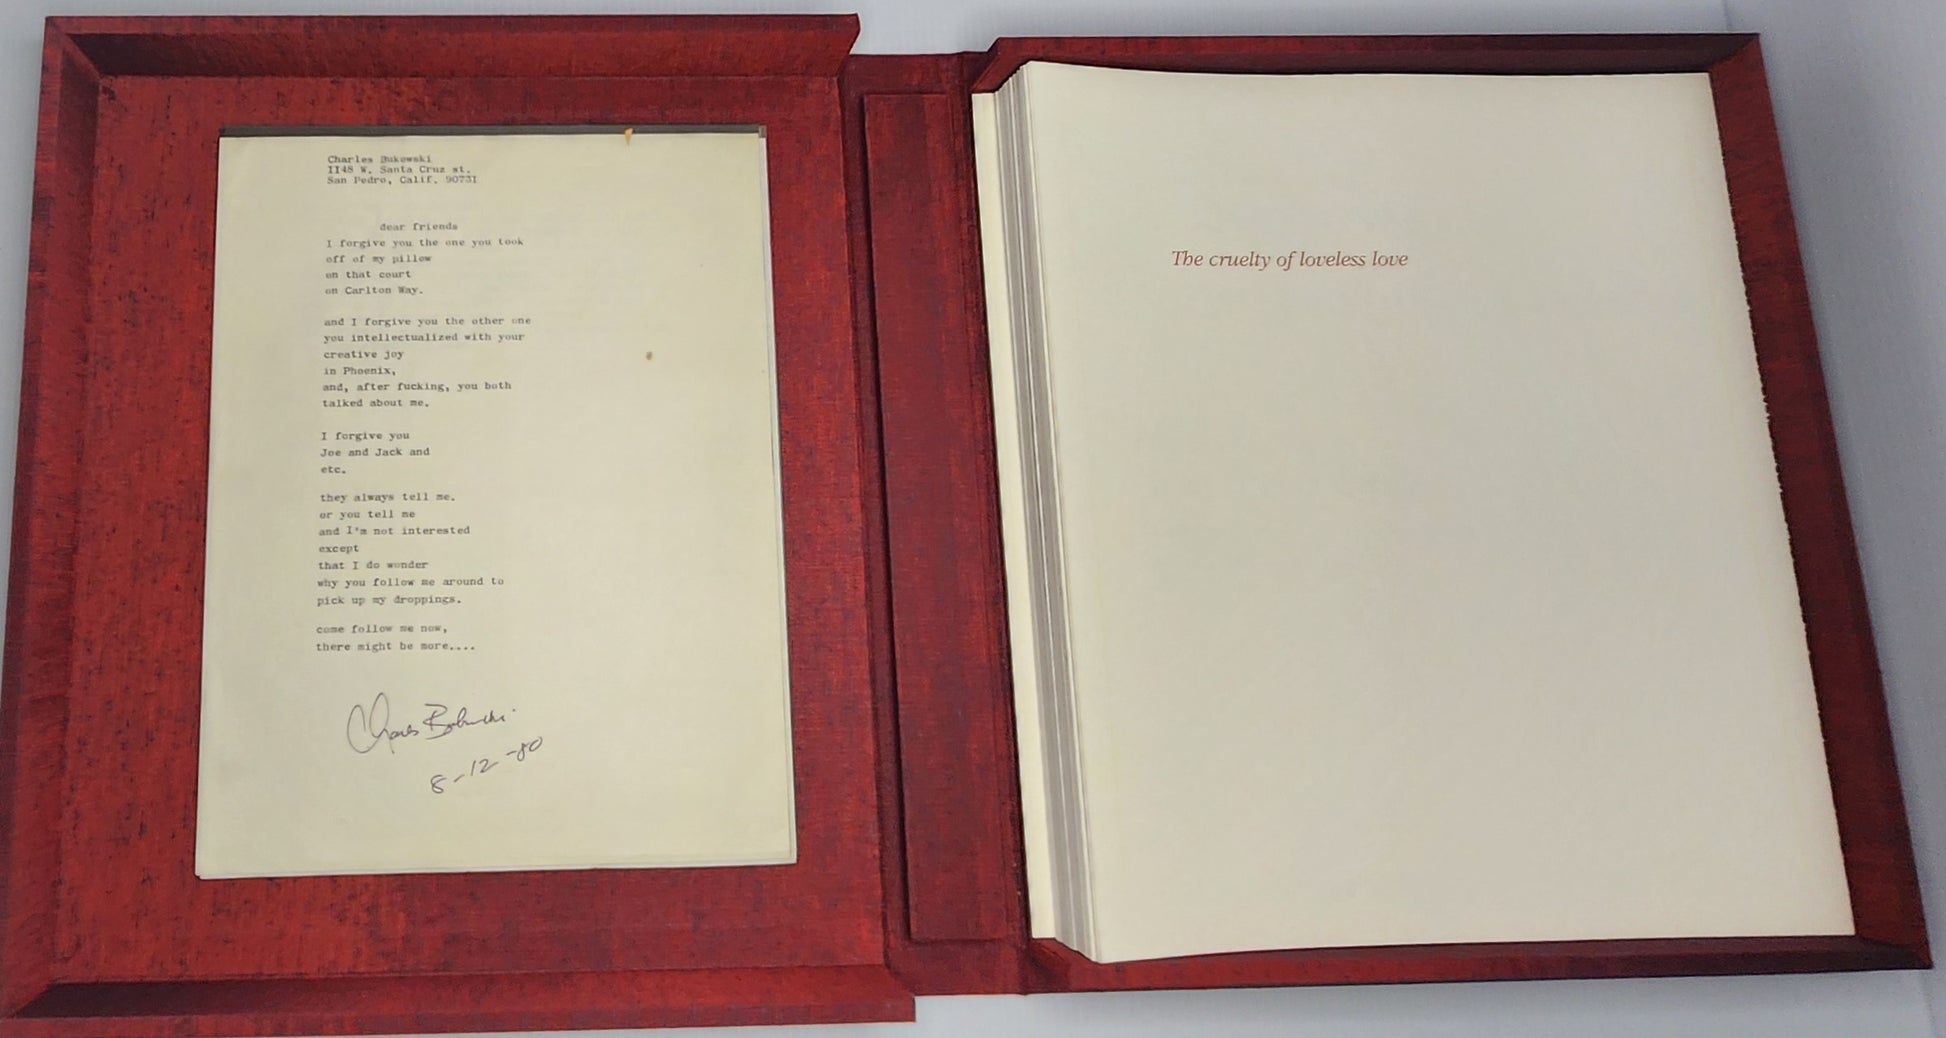 Charles Bukowski
1148 W. Santa Cruz st.
San Pedro, Calif. 90731
dear friends
I forgive you the one you took
off of my pillow
on that court
on Carlton Way.
and I forgive you the other one
you intellectualized with your
creative joy
in Phoenix,
and, after fucking, you both
talked about me.
I forgive you
Joe and Jack and
etc.
they always tell me.
or you tell me
and I'm not interested
except
that I do wonder
why you follow me around to
pick up my droppings.
come follow me now,
there might be more....
Charles Bukowski
8-12-80
The cruelty of loveless love